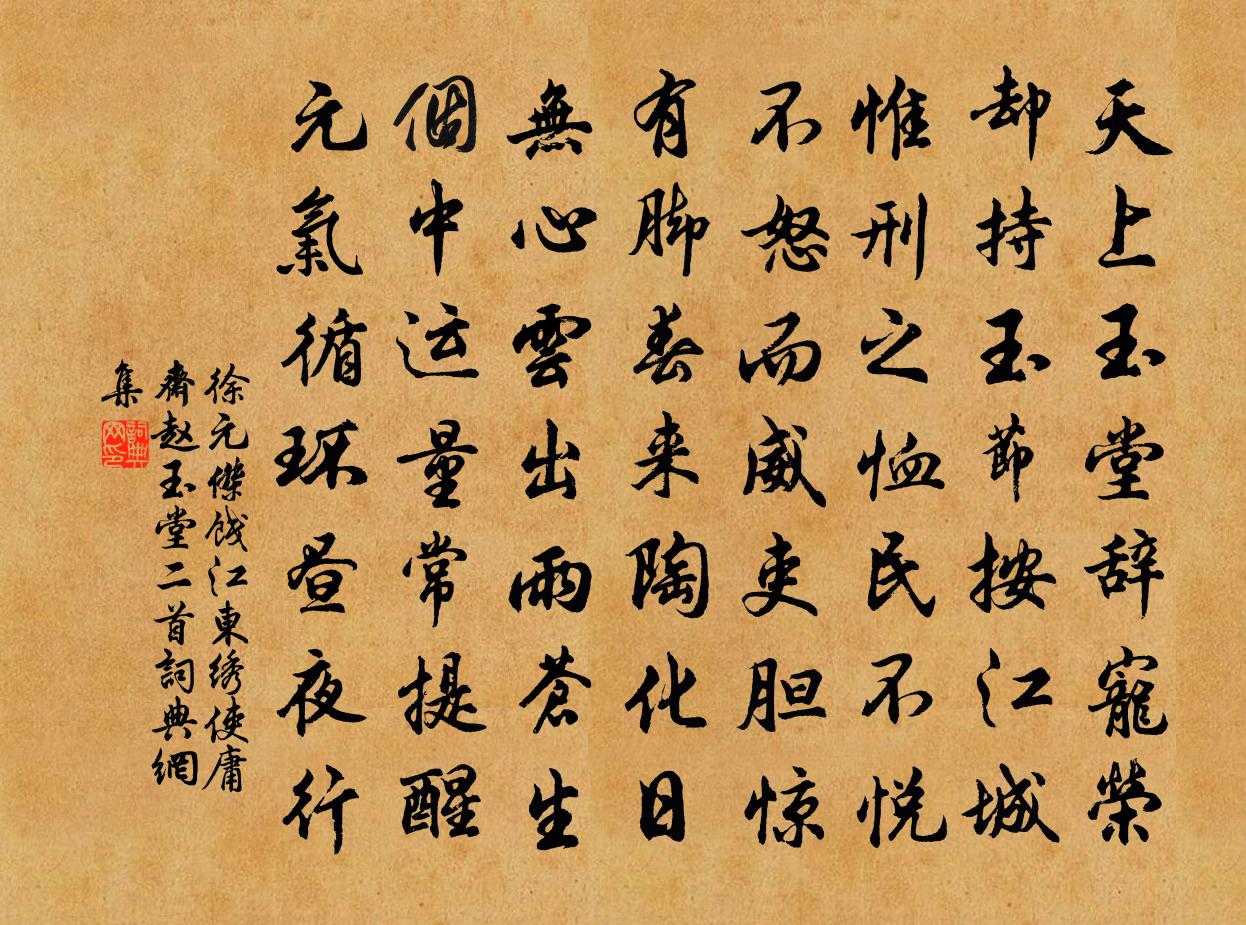 天上玉堂辞寵榮
却持玉節按江城
惟刑之恤民不悦
不怒而威吏胆惊
有脚春来陶化日
無心雲出雨蒼生
個中运量常提醒
元氣循环昼夜行
徐元傑餞江東绣使庸
齋赵玉堂二首詞典網
集
詞典網印